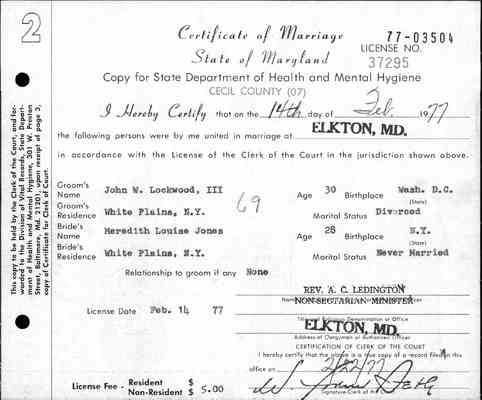 2
Certificate of Marriage
77-03504
State of Maryland
LICENSE NO.
37295
Copy for State Department of Health and Mental Hygiene
CECIL COUNTY (07)
I Hereby Certify that on the 14th day of Feb. 1977
the following persons were by me united in marriage at ELKTON, MD.
in accordance with the License of the Clerk of the Court in the jurisdiction shown above.
Groom's Name John W. Lockwood, III
Age 30 Birthplace Wash. D.C.
(State)
69
Groom's Residence White Plains, N.Y.
Marital Status Divorced
Bride's Name Meredith Louise Jones
Age 28 Birthplace N.Y.
(State)
Bride's Residence White Plains, N.Y.
Marital Status Never Married
Relationship to groom if any None
REV. A. C. LEDINGTON
NON-SECTARIAN MINISTER
License Date Feb. 14 77
ELKTON, MD.
Address of Clergyman or Authorized Officer
CERTIFICATION OF CLERK OF THE COURT
I hereby certify that the above is a true copy of a record filed in this
office on 2/22/77
License Fee - Resident $
Non-Resident $ 5.00
Signature-Clerk of the Court
This copy to be held by the Clerk of the Court, and forwarded to the Division of Vital Records, State Department of Health and Mental Hygiene, 301 W. Preston Street, Baltimore, Md. 21201, upon receipt of page 3, copy of Certificate for Clerk of Court.